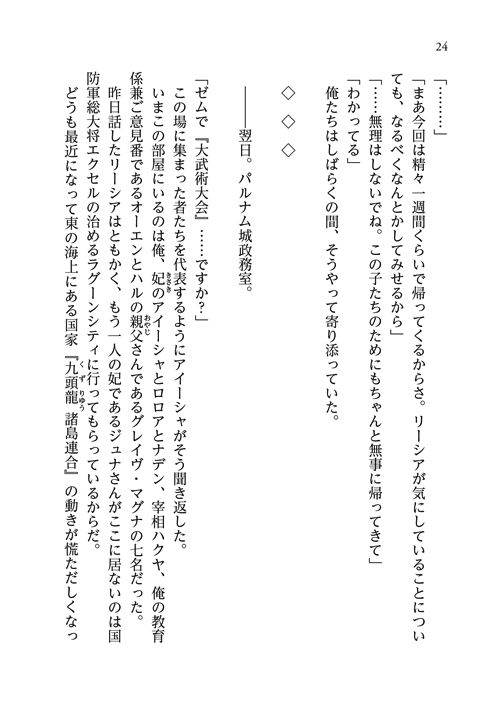 24
「………」
「まあ今回は精々一週間くらいで帰ってくるからさ。リーシアが気にしていることについ
ても、なるべくなんとかしてみせるから」
「……無理はしないでね。この子たちのためにもちゃんと無事に帰ってきて」
「わかってる」
俺たちはしばらくの間、そうやって寄り添っていた。
◇　◇　◇
――翌日。パルナム城政務室。
「ゼムで『大武術大会』……ですか？」
この場に集まった者たちを代表するようにアイーシャがそう聞き返した。
いまこの部屋にいるのは俺、妃のアイーシャとロロアとナデン、宰相ハクヤ、俺の教育
係兼ご意見番であるオーエンとハルの親父さんであるグレイヴ・マグナの七名だった。
昨日話したリーシアはともかく、もう一人の妃であるジュナさんがここに居ないのは国
防軍総大将エクセルの治めるラグーンシティに行ってもらっているからだ。
どうも最近になって東の海上にある国家『九頭龍諸島連合』の動きが慌ただしくなっ